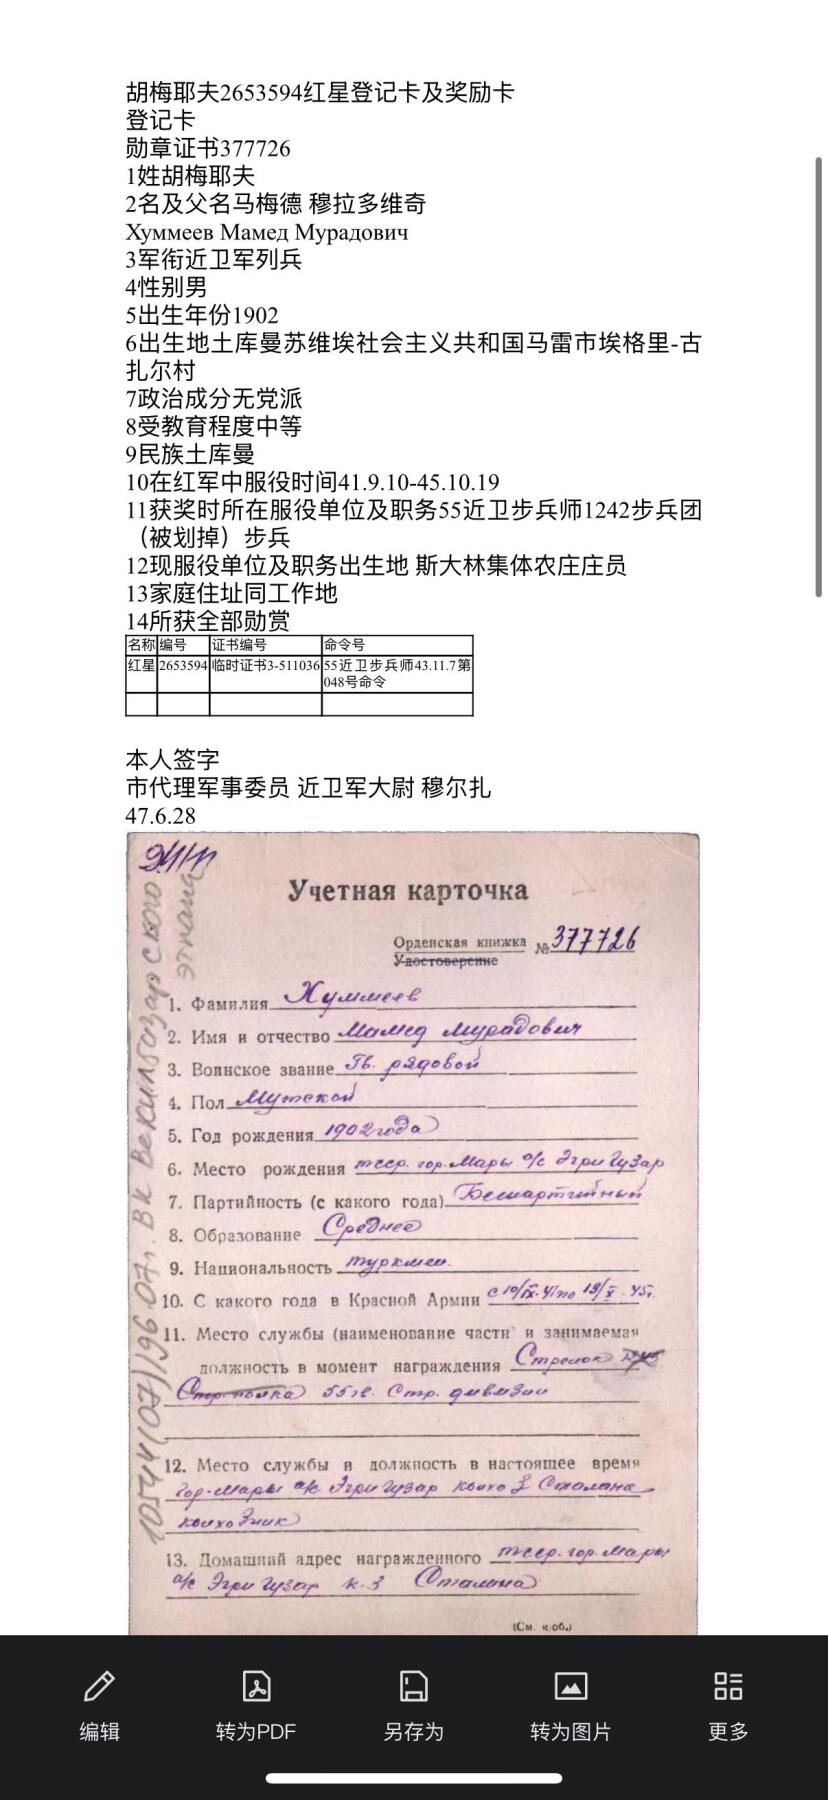 胡梅耶夫2653594红星登记卡及奖励卡
登记卡
勋章证书377726
1姓胡梅耶夫
2名及父名马梅德 穆拉多维奇
Хуммеев Мамед Мурадович
3军衔近卫军列兵
4性别男
5出生年份1902
6出生地土库曼苏维埃社会主义共和国马雷市埃格里-古
扎尔村
7政治成分无党派
8受教育程度中等
9民族土库曼
10在红军中服役时间41.9.10-45.10.19
11获奖时所在服役单位及职务55近卫步兵师1242步兵团
（被划掉）步兵
12现服役单位及职务出生地 斯大林集体农庄庄员
13家庭住址同工作地
14所获全部勋赏
名称 编号 证书编号 命令号
红星 2653594 临时证书3-511036 55近卫步兵师43.11.7第
048号命令
本人签字
市代理军事委员 近卫军大尉 穆尔扎
47.6.28
Учетная карточка
Орденская книжка №377726
Удостоверение
1. Фамилия Хуммеев
2. Имя и отчество Мамед Мурадович
3. Воинское звание Гв. рядовой
4. Пол Мужской
5. Год рождения 1902 года
6. Место рождения тсср. гор. Мары а/с Эгри Гузар
7. Партийность (с какого года) Беспартийный
8. Образование Среднее
9. Национальность туркмен.
10. С какого года в Красной Армии с 10/IX-41 по 19/X-45г.
11. Место службы (наименование части и занимаемая
должность в момент награждения Стрелок
Стр. полка 55 гв. Стр. дивизии
12. Место службы и должность в настоящее время
гор. Мары а/с Эгри Гузар колхоз Сталина
колхозник
13. Домашний адрес награжденного тсср. гор. Мары
а/с Эгри Гузар к-з Сталина
(См. н/об.)
编辑
转为PDF
另存为
转为图片
更多